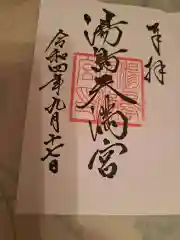 奉拝
湯島天満宮
令和四年九月十七日